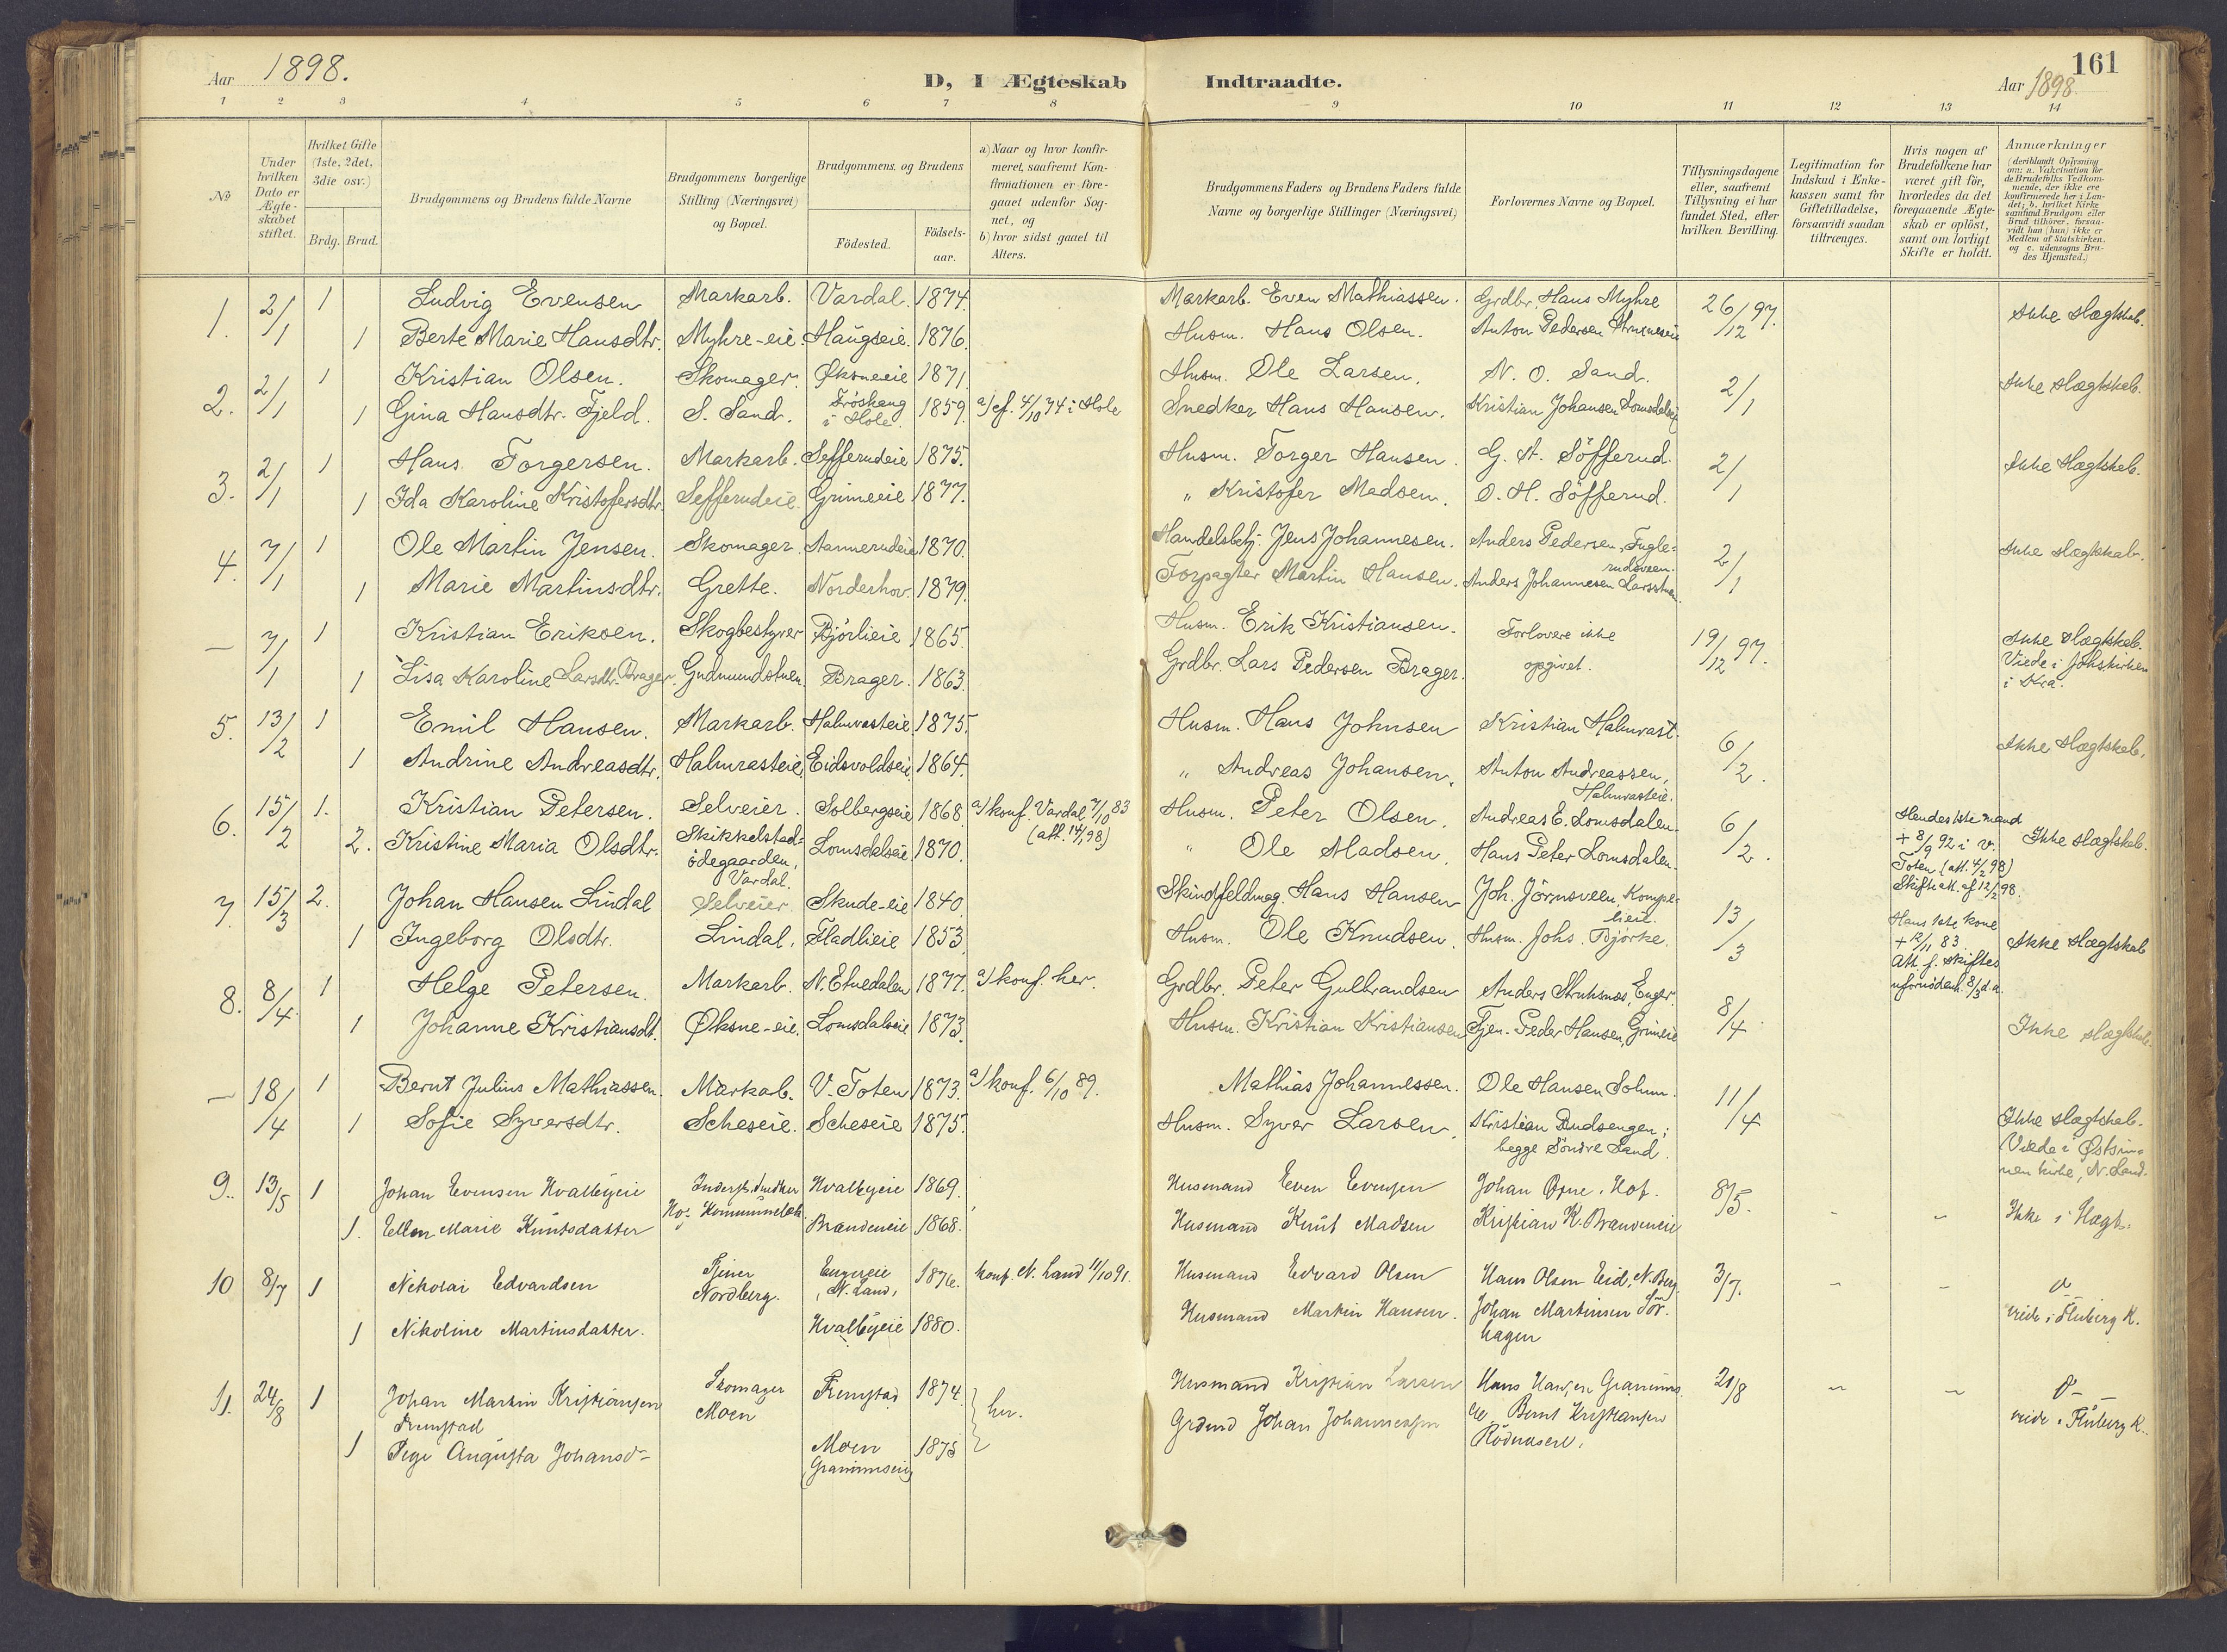 Aar 1898.
D, I Ægteskab Indtraadte.
161
Aar 1898.
1 2 3 4 5 6 7 8 9 10 11 12 13 14
№
Under hvilken Dato er Ægte-skabet stiftet.
Hvilket Gifte (1ste, 2det, 3die osv.)
Brdg. Brud.
Brudgommens og Brudens fulde Navne
Brudgommens borgerlige Stilling (Næringsvei) og Bopæl.
Brudgommens og Brudens
Födested. Födsels-aar.
a) Naar og hvor konfir-meret, saafremt Kon-firmationen er fore-gaaet udenfor Sog-net, og
b) hvor sidst gaaet til Alters.
Brudgommens Faders og Brudens Faders fulde Navne og borgerlige Stillinger (Næringsvei)
Forlovernes Navne og Bopæl.
Tillysningsdagene eller, saafremt Tillysning ei har fundet Sted, efter hvilken Bevilling.
Legitimation for Indskud i Enke-kassen samt for Giftetilladelse, forsaavidt saadan tiltrænges.
Hvis nogen af Brudefolkene har været gift för, hvorledes da det foregaaende Ægte-skab er oplöst, samt om lovligt Skifte er holdt.
Anmærkninger (deriblandt Oplysning om: a. Vakcination for de Brudefolks Vedkom-mende, der ikke ere konfirmerede her i Lan-det; b. hvilket Kirke samfund Brudgom eller Brud tilhörer, forsaa-vidt han (hun) ikke er Medlem af Statskirken. og c. udensogns Bru-des Hjemsted.)
1. 2/1 1 Ludvig Evensen Markarb. Vardal. 1874. Markarb. Even Mathiassen. Grdbr. Hans Myhre 26/12 97. Ikke Slægtskab.
1 Berte Marie Hansdtr. Myhre-eie. Haugseie. 1876. Husm. Hans Olsen. Anton Pedersen
2. 2/1 1 Kristian Olsen. Skomager. Øksneeie 1871. Husm. Ole Larsen. N. O. Sand. 2/1 Ikke Slægtskab.
1 Gina Hansdtr. Fjeld. S. Sand. Fröshaug i Hole. 1859. a) cf. 4/10 74 i Hole Snedker Hans Hansen. Kristian Johansen Lomsdalseie
3. 2/1 1 Hans Torgersen. Markarb. Sefferudeie 1875. Husm. Torger Hansen. G. A. Söfferud. 2/1 Ikke Slægtskab.
1 Ida Karoline Kristofersdtr. Sefferudeie. Grimeeie 1877. " Kristofer Madsen. O. H. Söfferud.
4. 7/1 1 Ole Martin Jensen. Skomager. Aannerudeie 1870. Handelsbetj. Jens Johannesen. Anders Pedersen, Fugle-rudsveen. 2/1 Ikke Slægtskab.
1 Marie Martinsdtr. Grette. Norderhov. 1879. Forpagter Martin Hansen. Anders Johannesen Larsstuen.
— 7/1 1 Kristian Eriksen. Skogbestyrer Bjørlieie 1865. Husm. Erik Kristiansen. Forlovere ikke 19/12 97. Ikke Slægtskab.
1 Lisa Karoline Larsdtr. Brager. Gudmundstuen. Brager. 1863. Grdbr. Lars Pedersen Brager. opgivet. Viede i Johskirken i Kra.
5. 13/2 1 Emil Hansen. Markarb. Halmrasteie 1875. Husm. Hans Johnsen Kristian Halmrast. 6/2. Ikke Slægtskab.
1 Andrine Andreasdtr. Halmrasteie. Eidsvoldseie. 1864. " Andreas Johansen. Anton Andreassen, Halmrasteie.
6. 15/2 1. Kristian Petersen. Selveier. Solbergseie 1868. a) konf. Vardal 7/10 83 (att. 14/1 98) Husm. Peter Olsen. Andreas E. Lomsdalen. 6/2. Hendes 1ste mand + 8/9 92 i V. Toten (att. 4/2 98) Skifteatt. af 12/2 98. Ikke Slægtskab.
2. Kristine Maria Olsdtr. Skikkelstad-ödegaarden, Vardal. Lomsdalseie 1870. " Ole Madsen. Hans Peter Lomsdalen.
7. 15/3 2. Johan Hansen Lindal Selveier Skude-eie 1840. Skindfeldmag. Hans Hansen Joh. Jörnsveen, Kompe-lieie. 13/3 Hans 1ste kone + 12/11 83. Att. f. skiftes ufornödenh. 8/3 d.a. Ikke Slægtskab
1 Ingeborg Olsdtr. Lindal. Fladlieie 1853. Husm. Ole Knudsen. Husm. Johs. Bjørke.
8. 8/4. 1 Helge Petersen. Markarb. N. Etnedalen 1877. a) konf. her. Grdbr. Peter Gulbrandsen Anders Struksnæs, Enger. 8/4
1 Johanne Kristiansdt. Øksne-eie. Lomsdalseie 1873. Husm. Kristian Kristiansen Tjen. Peder Hansen, Grimeie Ikke Slægtskab.
— 18/4 1 Bernt Julius Mathiassen. Markarb. V. Toten 1873. a) konf. 6/10 89. Mathias Johannessen. Ole Hansen Solum. 11/4
1 Sofie Syversdtr. Scheseie. Scheseie 1875. Husm. Syver Larsen. Kristian Rudsengen; begge Söndre Land. Ikke Slægtskab. Viede i Østsin-nen kirke, N. Land.
9. 13/5 1 Johan Evensen Kvalbyeie Inderst, snedker Kvalbyeie 1869. Husmand Even Evensen Johan Øsne, Hof. 8/5. Ikke i Slægt.
1. Ellen Marie Knutsdatter Brandeneie 1868. Husmand Knut Madsen Kristian K. Brandeneie
10 8/7 1 Nikolai Edvardsen Tjener Nordberg. Engereie, N. Land, 1876. konf. N. Land 11/10 91. Husmand Edvard Olsen Hans Olsen Eid, N. Berg. 3/7.
1 Nikoline Martinsdatter. Kvalbyeie 1880. Husmand Martin Hansen. Johan Martinsen Sör-hagen viede i Fluberg K.
11. 24/8 1 Johan Martin Kristiansen Skomager Moen 1874 her. Husmand Kristian Larsen Hans Hansen 21/8
1 Augusta Johansd Moen 1875 Grdmd Johan Johannessen Bernt Kristiansen viede i Fluberg K.